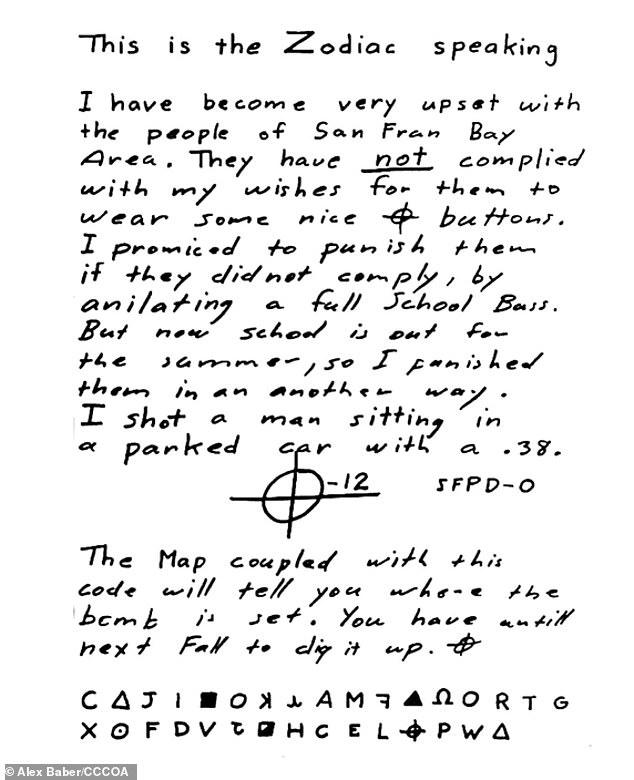 This is the Zodiac speaking
I have become very upset with
the people of San Fran Bay
Area. They have not complied
with my wishes for them to
wear some nice ⌖ buttons.
I promiced to punish them
if they did not comply, by
anilating a full School Buss.
But now school is out for
the summer, so I punished
them in an another way.
I shot a man sitting in
a parked car with a .38.
⌖-12 SFPD-0
The Map coupled with this
code will tell you where the
bomb is set. You have untill
next Fall to dig it up. ⌖
C Δ J I ■ O ʞ A M ꟻ ▲ Ω O R T G
X ⊙ F D V ◪ H C E L ⌖ P W Δ
© Alex Baber/CCCOA